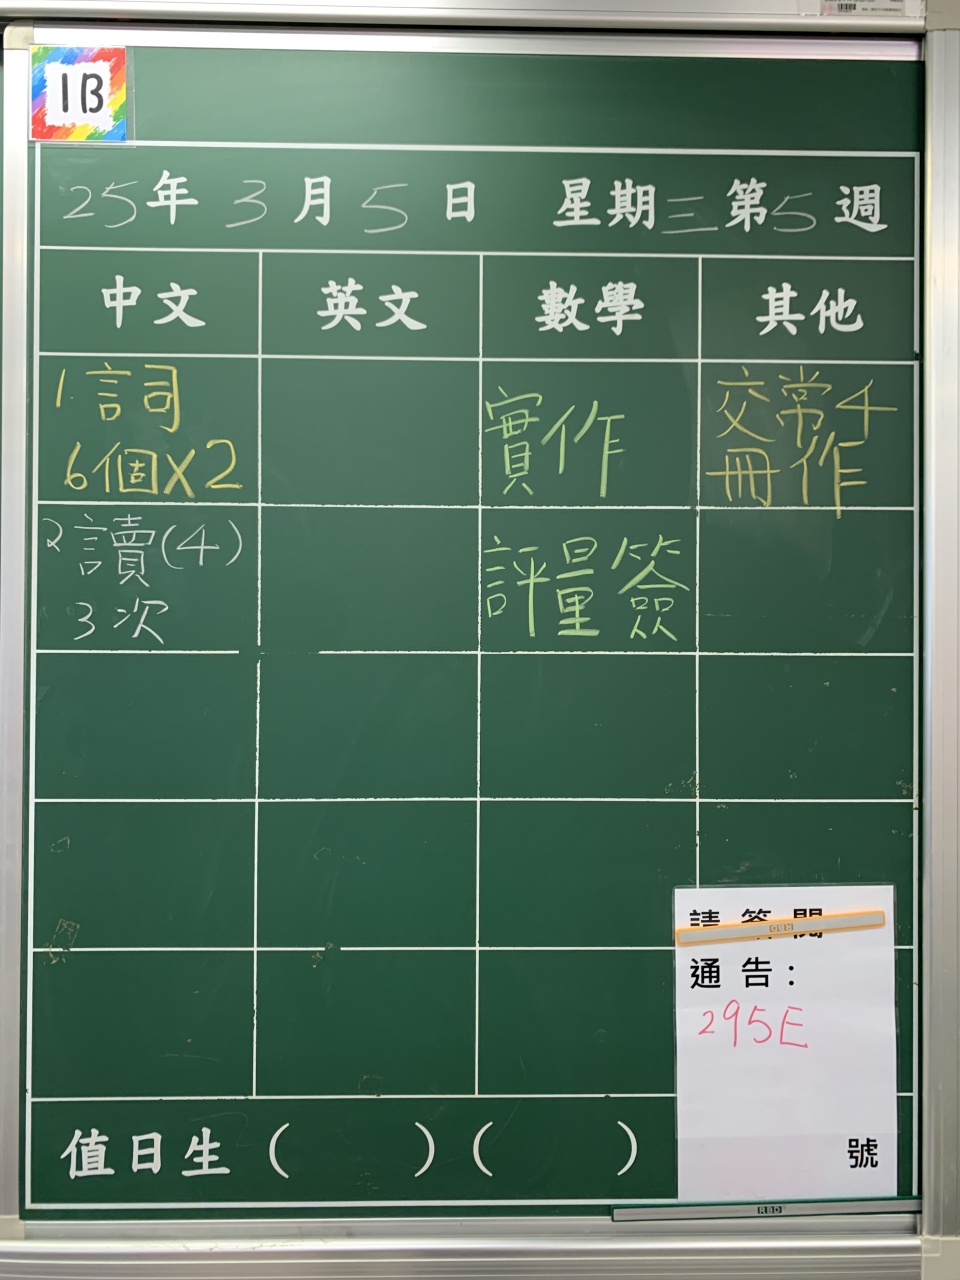 1B
25年 3月5日 星期三第5週
中文 英文 數學 其他
1.言司
6個X2
實作
交常4
冊作
2讀(4)
3次
評量簽
請簽閱
RBD
通告:
295E
號
值日生( )( )
RBD